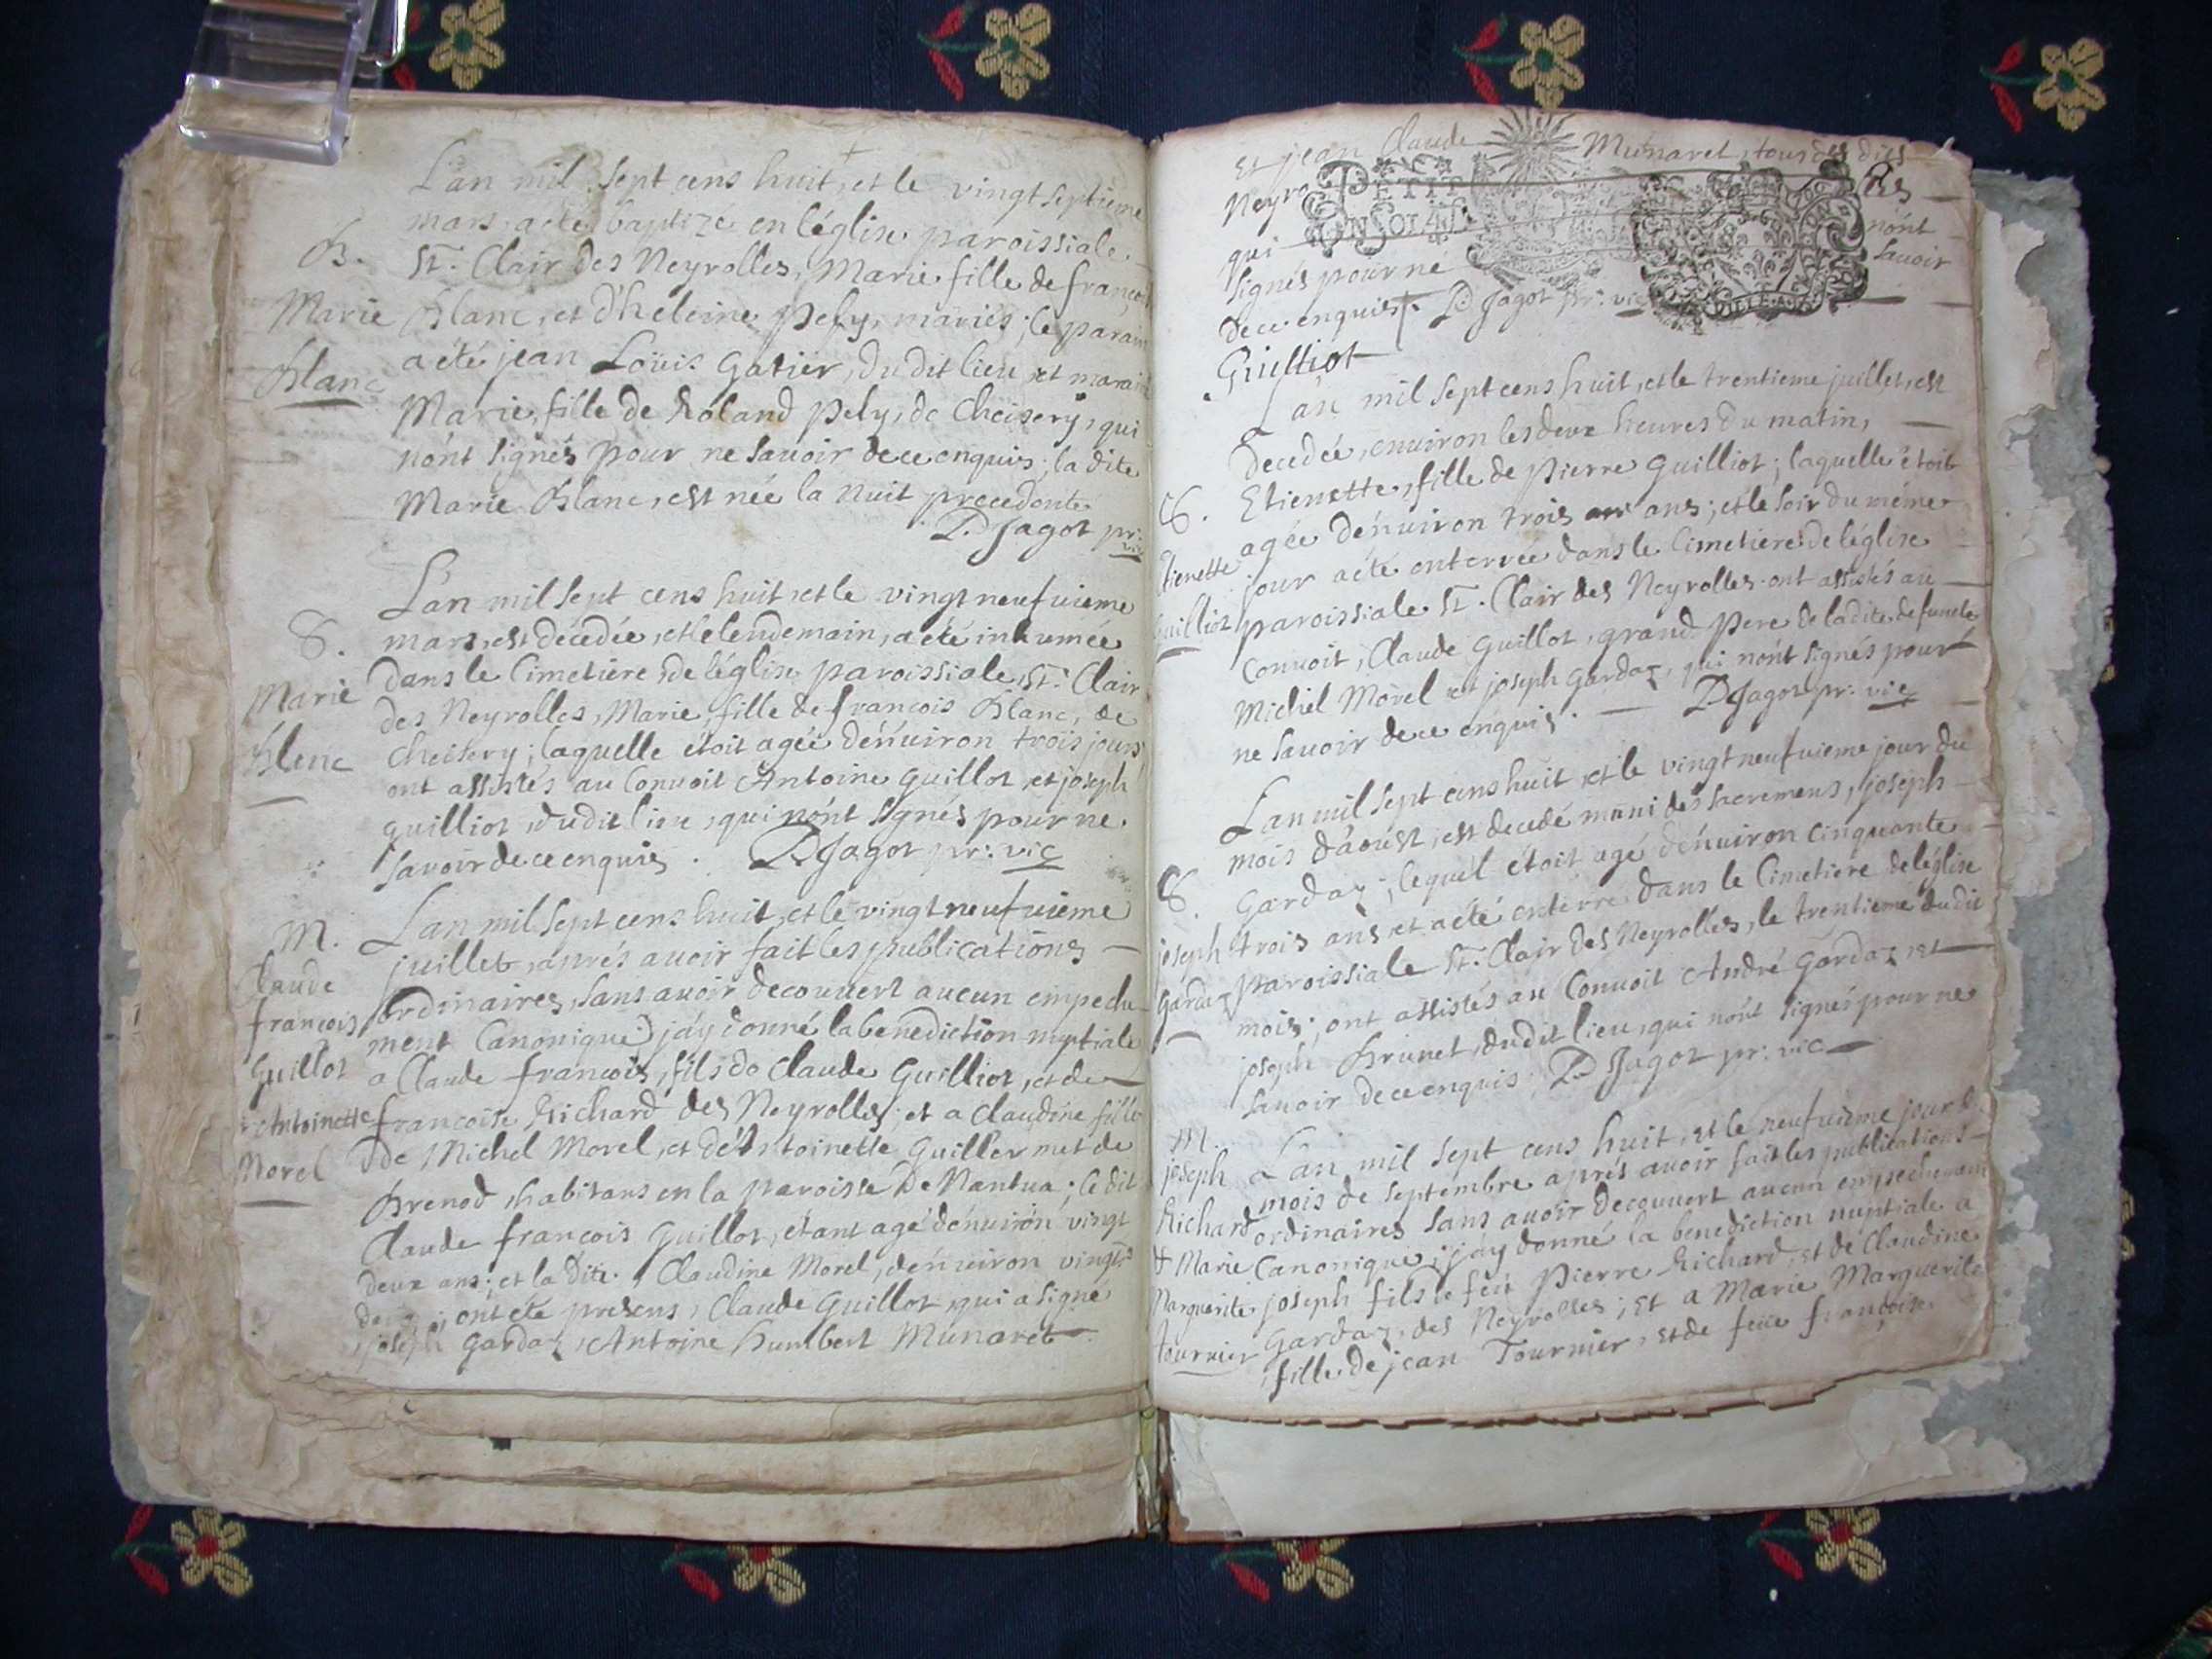 L'an mil sept cens huit, et le vingt septieme
mars, a été baptizé en l'église paroissiale
B. St. Clair des Neyrolles, Marie fille de françois
Marie Blanc, et d'heleine Pely, mariés; le parain
Blanc a été jean Loüis Gatier, du dit lieu et maraine
Marie, fille de Roland Pely, de Cheisery, qui
n'ont signés pour ne savoir de ce enquis; la dite
Marie Blanc, est née la nuit precedente
D. Jagot pr: vic
L'an mil sept cens huit, et le vingt neufuieme
S. mars, est décedée, et le lendemain, a été inhumée
Marie dans le Cimetiere de l'église paroissiale, St. Clair
des Neyrolles, Marie, fille de francois Blanc, de
Blenc Cheisery; laquelle étoit agée d'énuiron trois jours
ont assistés au Conuoit Antoine Guillot, et joseph
guilliot, du dit lieu, qui n'ont signés pour ne
savoir de ce enquis. D. Jagot pr: vic
M. L'an mil sept cens huit, et le vingt neufuieme
Claude juillet, aprés auoir fait les publications
françois ordinaires, sans auoir decouuert aucun empeche-
Guillot ment Canonique j'ay donné la benediction nuptiale
a Claude francois, fils de Claude Guilliot, et de
et Antoinette francoise Richard des Neyrolles; et a Claudine fille
Morel de Michel Morel, et d'éAntoinette Guillermet de
Brenod, habitans en la paroisse de Nantua; le dit
Claude francois Guillot, étant agé d'énuiron vingt
deux ans; et la dite Claudine Morel, d'énuiron vingts
ont été presens, Claude Guillot, qui a signé
joseph Gardaz, Antoine humbert Munaret
Et jean Claude Munaret, tous des dits
Neyro PETIT les
qui UN SOL 4 D. n'ont
signés pour ne Sauoir
de ce enquis. D. Jagot pr: vic
Guilliot
L'an mil sept cens huit, et le trentieme juillet, est
decedée, enuiron les deux heures du matin,
S. Etienette, fille de Pierre Guilliot; laquelle étoit
agée d'énuiron trois ans; et le soir du méme
Etienette jour a été enterrée dans le Cimetiere de l'église
Guilliot paroissiale St. Clair des Neyrolles ont assistés au
Conuoit, Claude Guillot, grand Pere de la dite defuncte
Michel Morel et joseph Gardaz, qui n'ont signés pour
ne sauoir de ce enquis. D. Jagot pr: vic
L'an mil sept cens huit et le vingt neufuieme jour du
mois d'aoust, est decedé muni des sacremens, joseph
S. Gardaz; lequel étoit agé d'énuiron cinquante
joseph trois ans et a été enterré dans le Cimetiere de l'église
Gardaz paroissiale St. Clair des Neyrolles, le trentieme du dit
mois; ont assistés au Conuoit André Gardaz, et
joseph Brunet, du dit lieu, qui n'ont signés pour ne
sauoir de ce enquis; D. Jagot pr: vic
M. L'an mil sept cens huit, et le neufuieme jour d.
joseph mois de septembre aprés auoir fait les publications
Richard ordinaires sans auoir decouuert aucun empechement
& Marie Canonique; j'ay donné la benediction nuptiale a
Marguerite joseph fils de feu Pierre Richard, et de Claudine
Gardaz, des Neyrolles; Et a Marie Marguerite
tournier fille de jean Tournier, et de feüe françoise